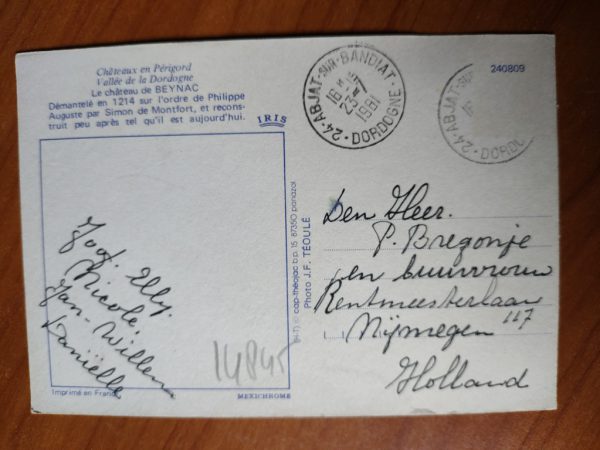 Châteaux en Périgord
Vallée de la Dordogne
Le château de BEYNAC
Démantelé en 1214 sur l'ordre de Philippe
Auguste par Simon de Montfort, et recons-
truit peu après tel qu'il est aujourd'hui.
IRIS
24-ABJAT-SUR-BANDIAT
16H
23-5
1981
DORDOGNE
24-ABJAT-SUR
16
DORDO
240809
Joof. Elly.
Nicole.
Jan-Willem
Daniëlle
14845
Imprimé en France
MEXICHROME
cap-théojac b.p. 15 87350 panazol
Photo J.F. TÉOULÉ
Den Heer.
P. Bregonje
en buurvrouw
Rentmeesterlaan
117
Nijmegen
Holland